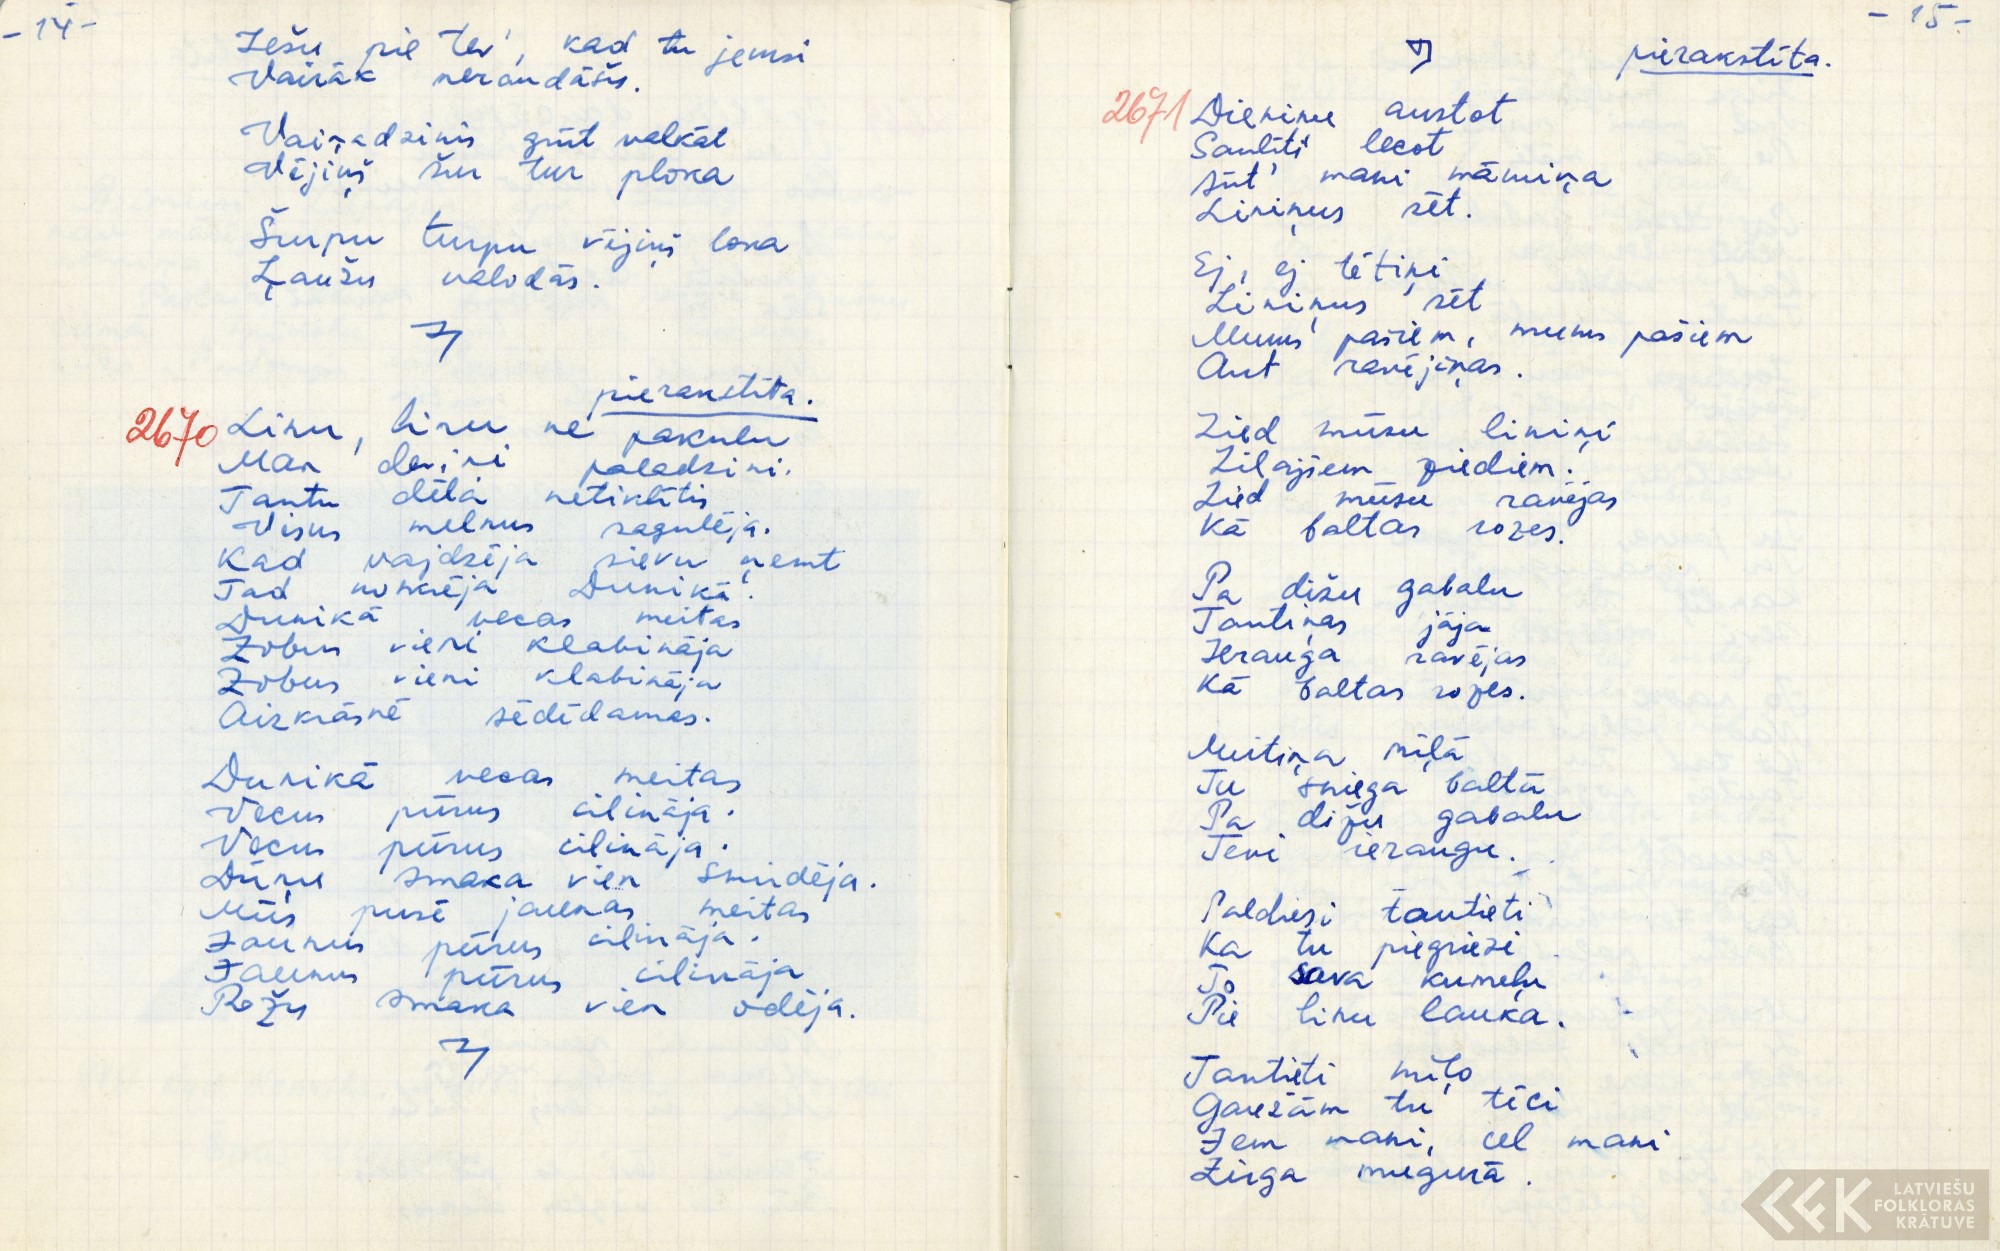 - 14 -
Iešu pie tev', kad tu jemsi
Vairāk neraudāšs.
Vaiņadzinis grūt valkāt
Vējiņš šur tur ploka
Šurpu turpu vējiņš loka
Ļaužu valodās.
pierakstīta.
2670
Linu, linu ne pakulu
Man deviņi paladziņi.
Tautu dēla netiklītis
Visus melnus sagulēja.
Kad vajdzēja sievu ņemt
Tad nonkēja Dunikā!
Dunikā vecas meitas
Zobus vieni klabināja
Zobus vieni klabināja
Aizkrāsnē sēdēdamas.
Dunikā vecas meitas
Vecus pūrus cilināja.
Vecus pūrus cilināja.
Dūņu smaka vien smirdēja.
Mūs pusē jaunas meitas
Jaunus pūrus cilināja.
Jaunus pūrus cilināja
Rožu smaka vien odēja.
- 15 -
pierakstīta.
2671
Dieniņu austot
Saulīti lecot
Sūt' mani māmiņa
Liniņus sēt.
Ej, ej tētiņi
Liniņus sēt
Mums pašiem, mums pašiem
Aut ravējiņas.
Zied mūsu liniņi
Zilajiem ziediem.
Zied mūsu ravējas
Kā baltas rozes.
Pa dižu gabalu
Tautiņas jāja
Ierauga ravējas
Kā baltas rozes.
Meitiņa mīļā
Tu sniega baltā
Pa dižu gabalu
Tevi ieraugu.
Paldiesi tautieti
Ka tu piegriezi
To sava kumeļu
Pie linu lauka.
Tautieti mīļo
Garežām tu tici
Jem mani, cel mani
Zirga mugurā.
LATVIEŠU
FOLKLORAS
KRĀTUVE